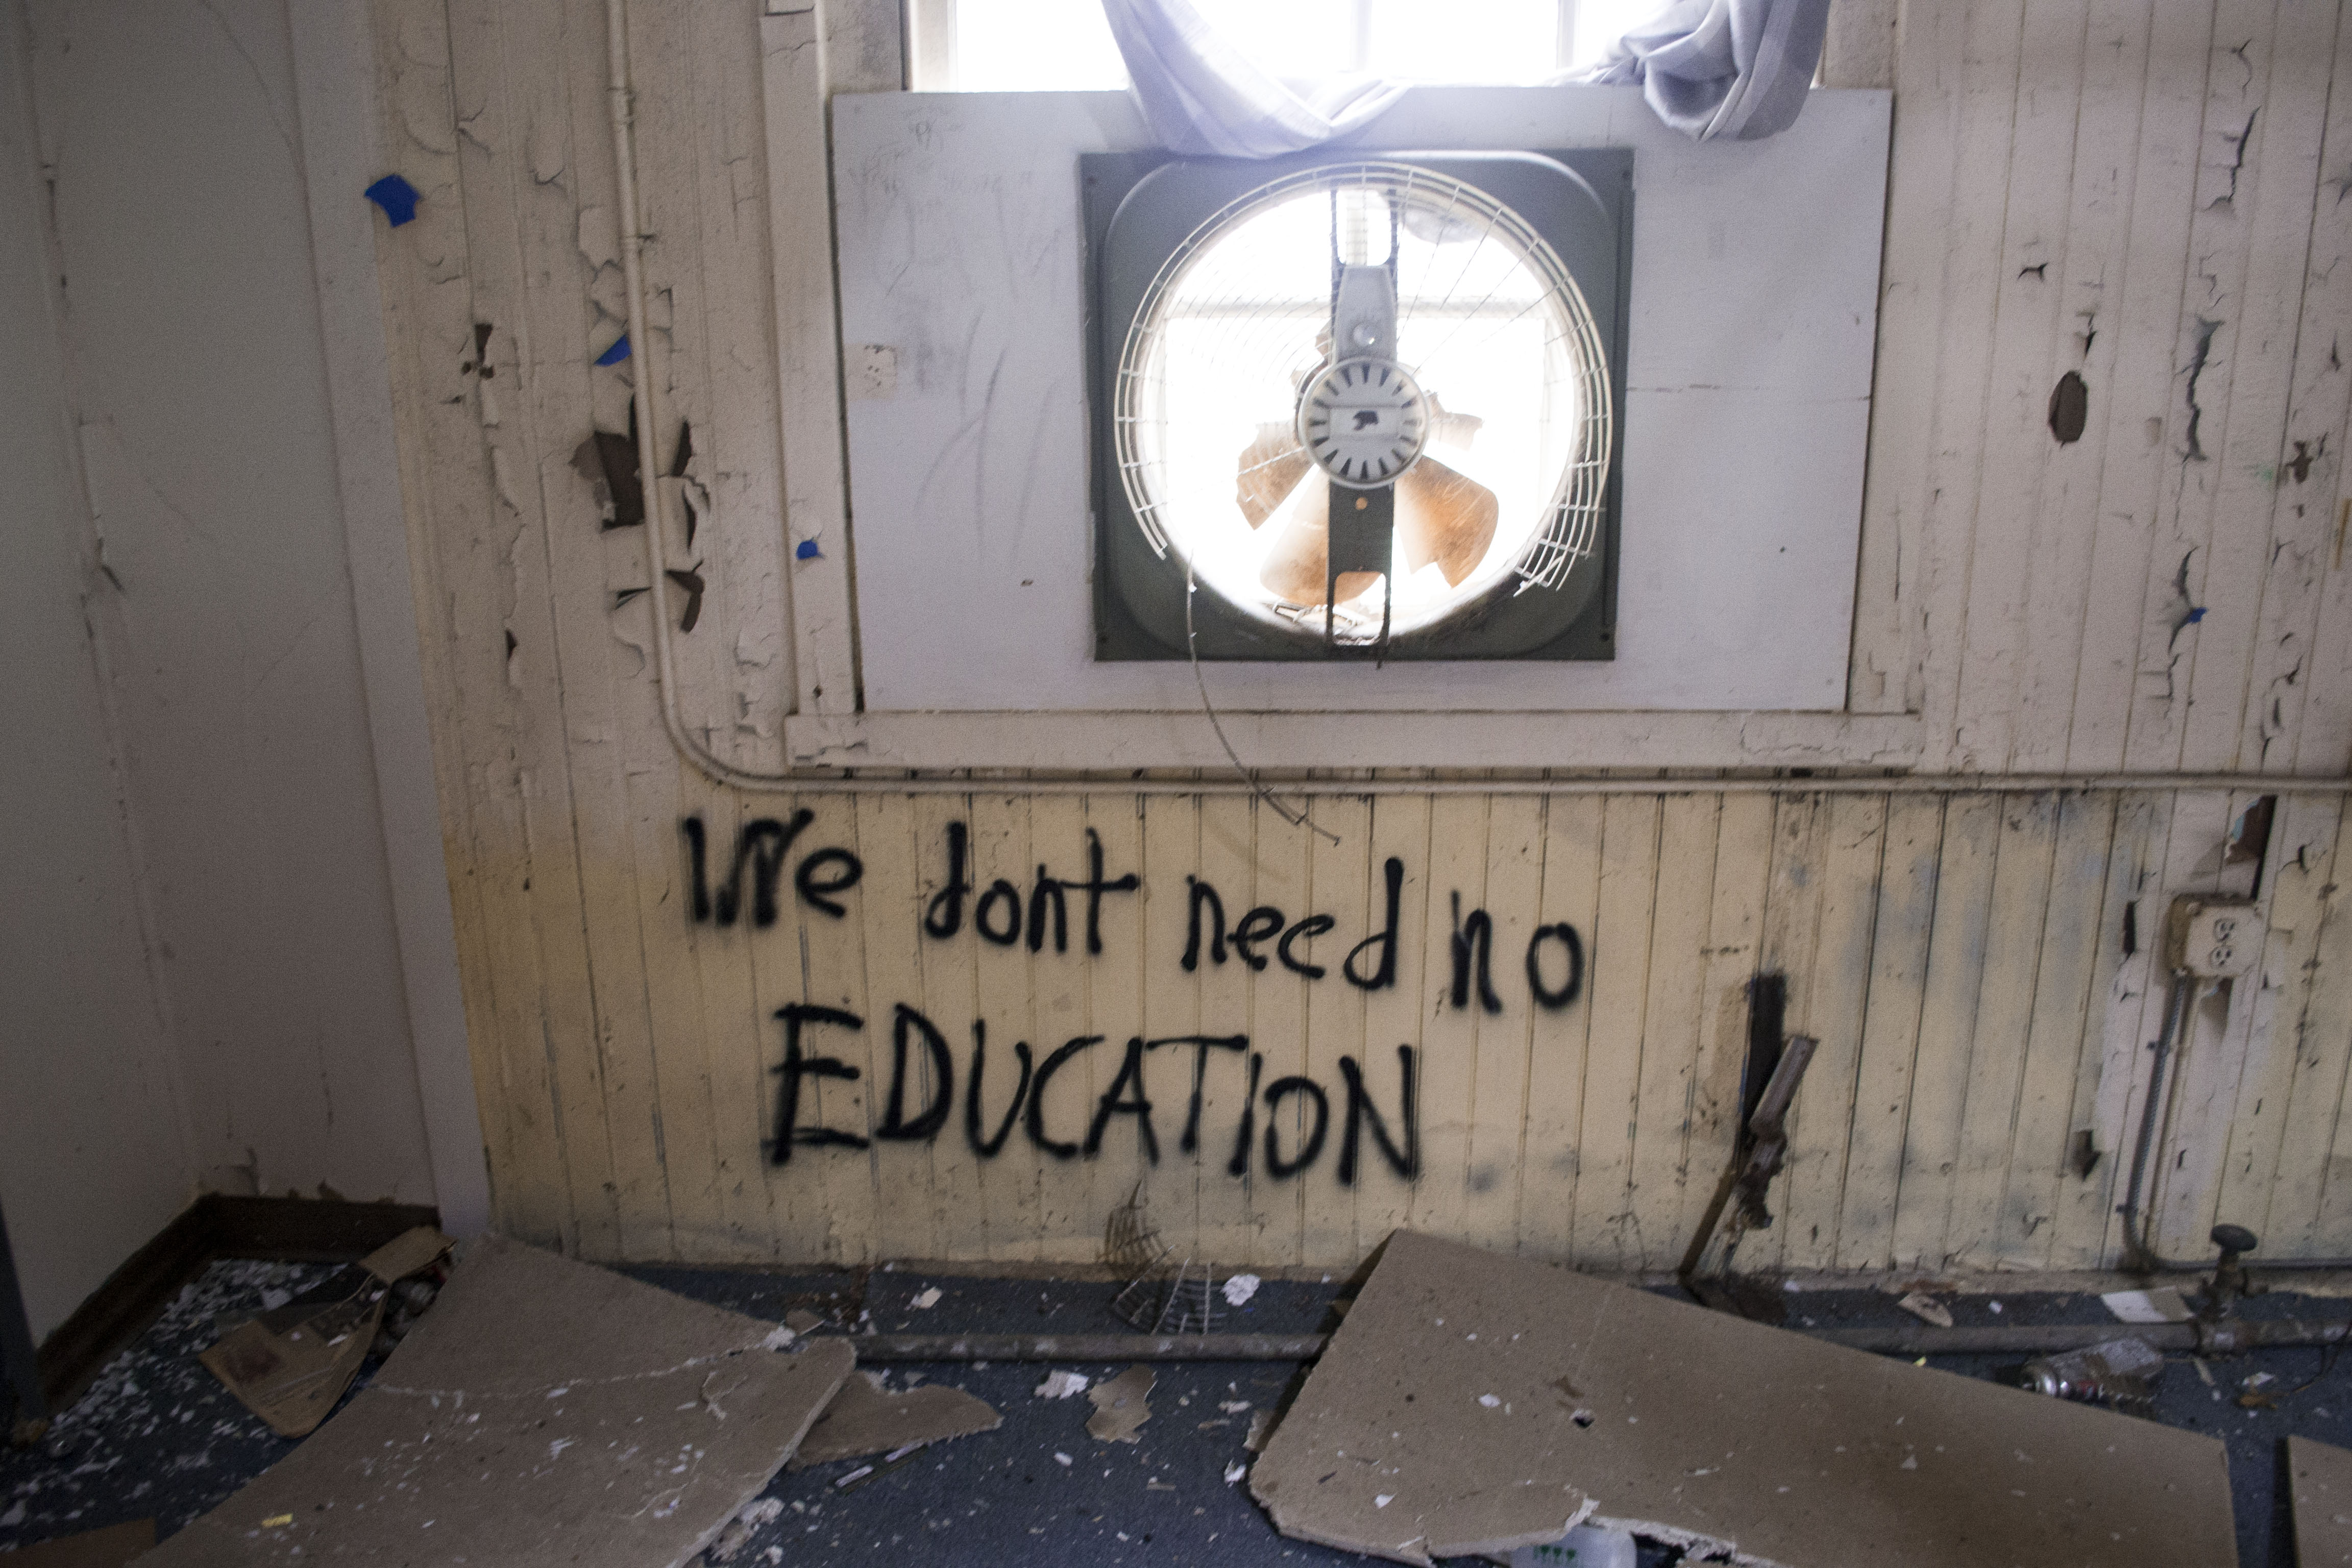 We dont need no
EDUCATION